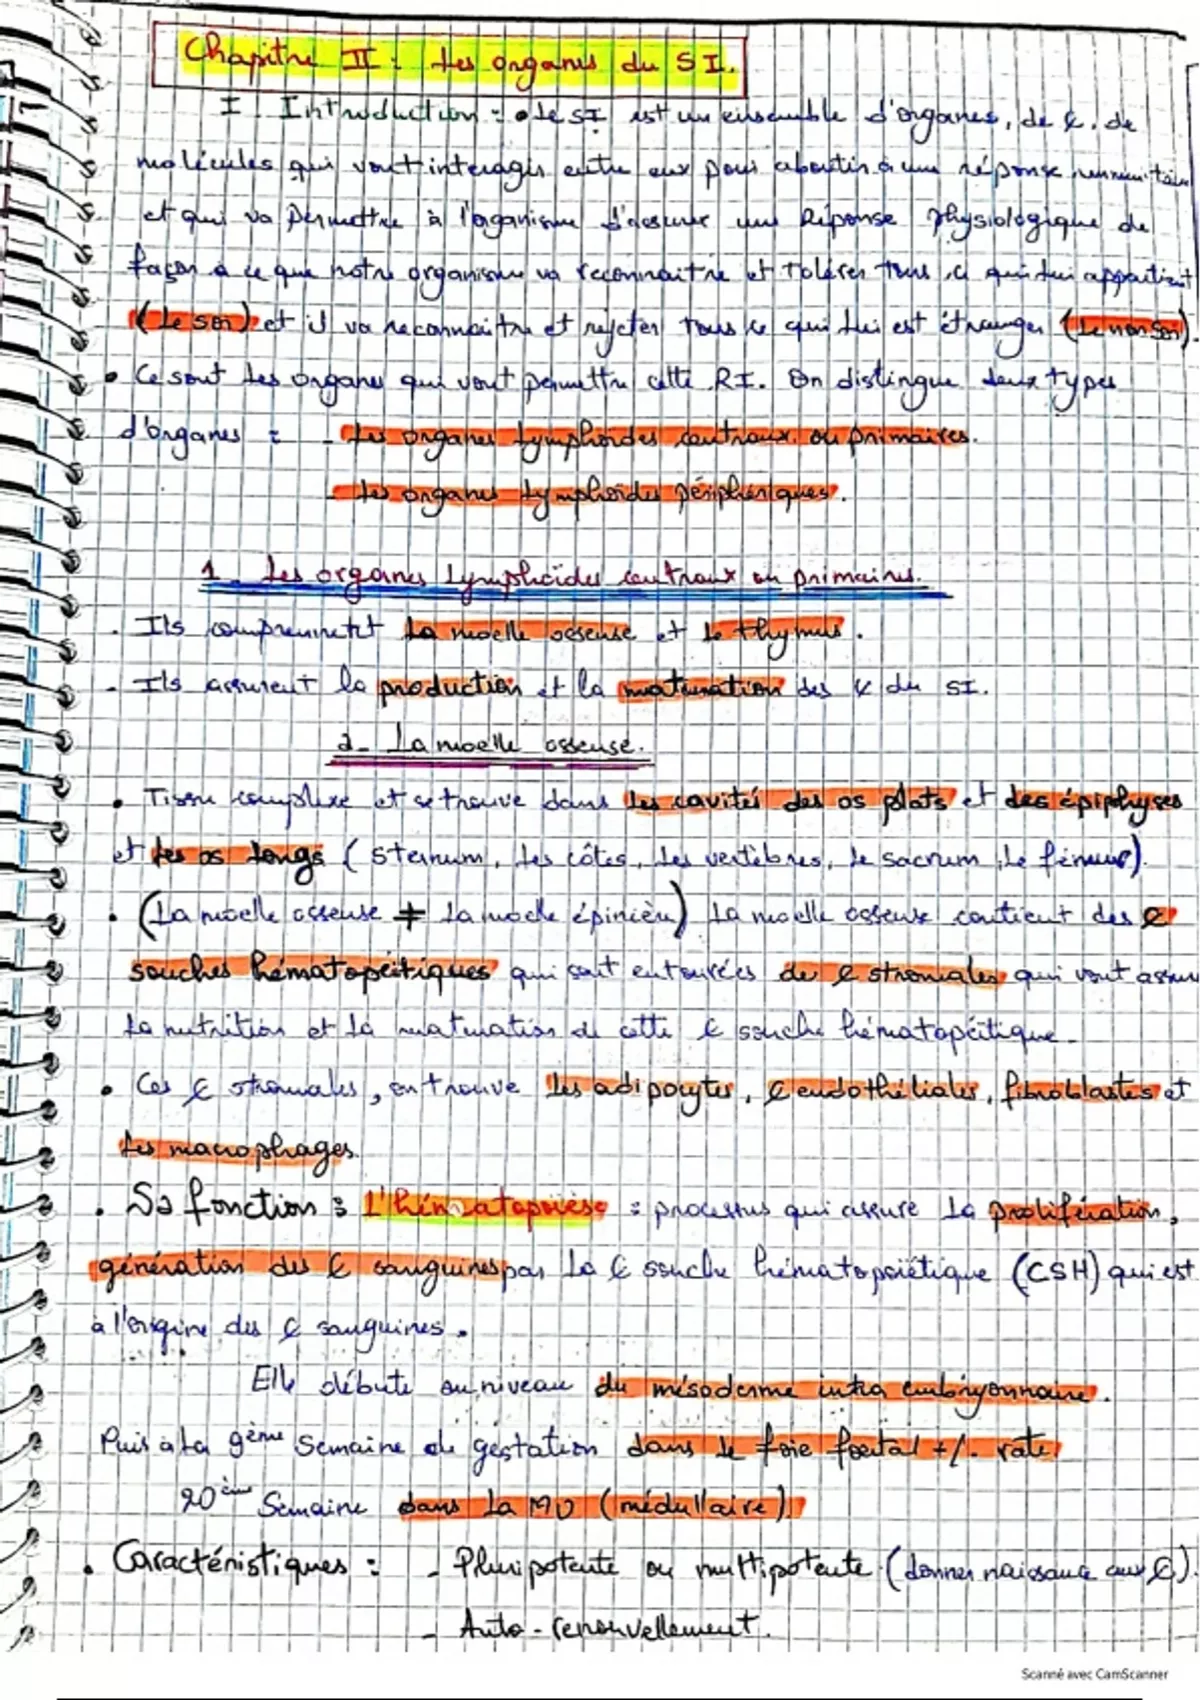 Chapitre II : Les organes du SI.
I. Introduction : • Le SI est un ensemble d'organes, de ₵, de
molécules qui vont interagir entre eux pour aboutir à une réponse immunitaire
et qui va permettre à l'organisme d'assurer une Réponse physiologique de
façon à ce que notre organisme va reconnaitre et tolérer tous ce qui lui appartient
(Le soi) et il va reconnaitre et rejeter tous ce qui lui est étranger (Le non soi).
• Ce sont les organes qui vont permettre cette RI. On distingue deux types
d'organes : - Les organes lymphoïdes centraux ou primaires.
- Les organes lymphoïdes périphériques.
1. Les organes Lymphoïdes centraux ou primaires.
. Ils comprennent La moelle osseuse et le thymus.
. Ils assurent la production et la maturation des ₵ du SI.
a- La moelle osseuse.
• Tissu complexe et se trouve dans les cavités des os plats et des épiphyses
et les os longs (sternum, les côtes, les vertèbres, le sacrum, le fémur).
• (La moelle osseuse ≠ la moelle épinière) La moelle osseuse contient des ₵
souches hématopëitiques qui sont entourées de ₵ stromales qui vont assurer
la nutrition et la maturation de cette ₵ souche hématopëitique.
• Ces ₵ stromales, on trouve les adipocytes, ₵ endothéliales, fibroblastes et
les macrophages.
. Sa fonction : L'hématopoïèse : processus qui assure la prolifération,
génération des ₵ sanguines par la ₵ souche hématopoïétique (CSH) qui est
à l'origine des ₵ sanguines.
Elle débute au niveau du mésoderme intra embryonnaire.
Puis à la 9ème Semaine de gestation dans le foie foetal +/- rate
20ème Semaine dans la MO (médullaire).
. Caractéristiques : - Pluripotente ou multipotente (donner naissance aux ₵).
- Auto-renouvellement.
Scanné avec CamScanner